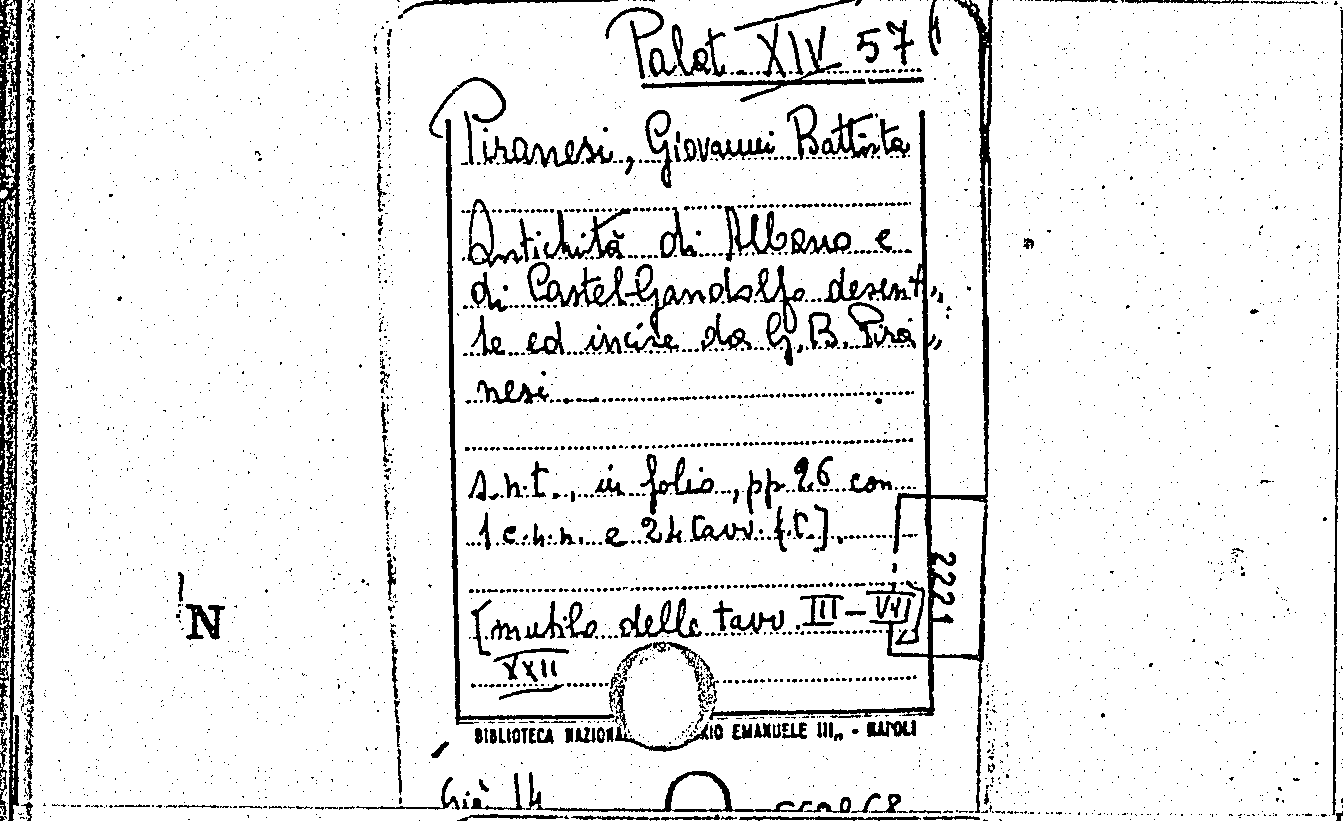 Palat. XIV 57(
Piranesi, Giovanni Battista
Antichità di Albano e
di Castel-Gandolfo descrit„
te ed incise da G.B. Pira„
nesi.
s.n.t., in folio, pp 26 con
1 c.n.n. e 24 tavv. f.t.].
[mutilo delle tavv. III-VII]
XXII
2221
N
BIBLIOTECA NAZIONA RIO EMANUELE III„ - NAPOLI
Già 14